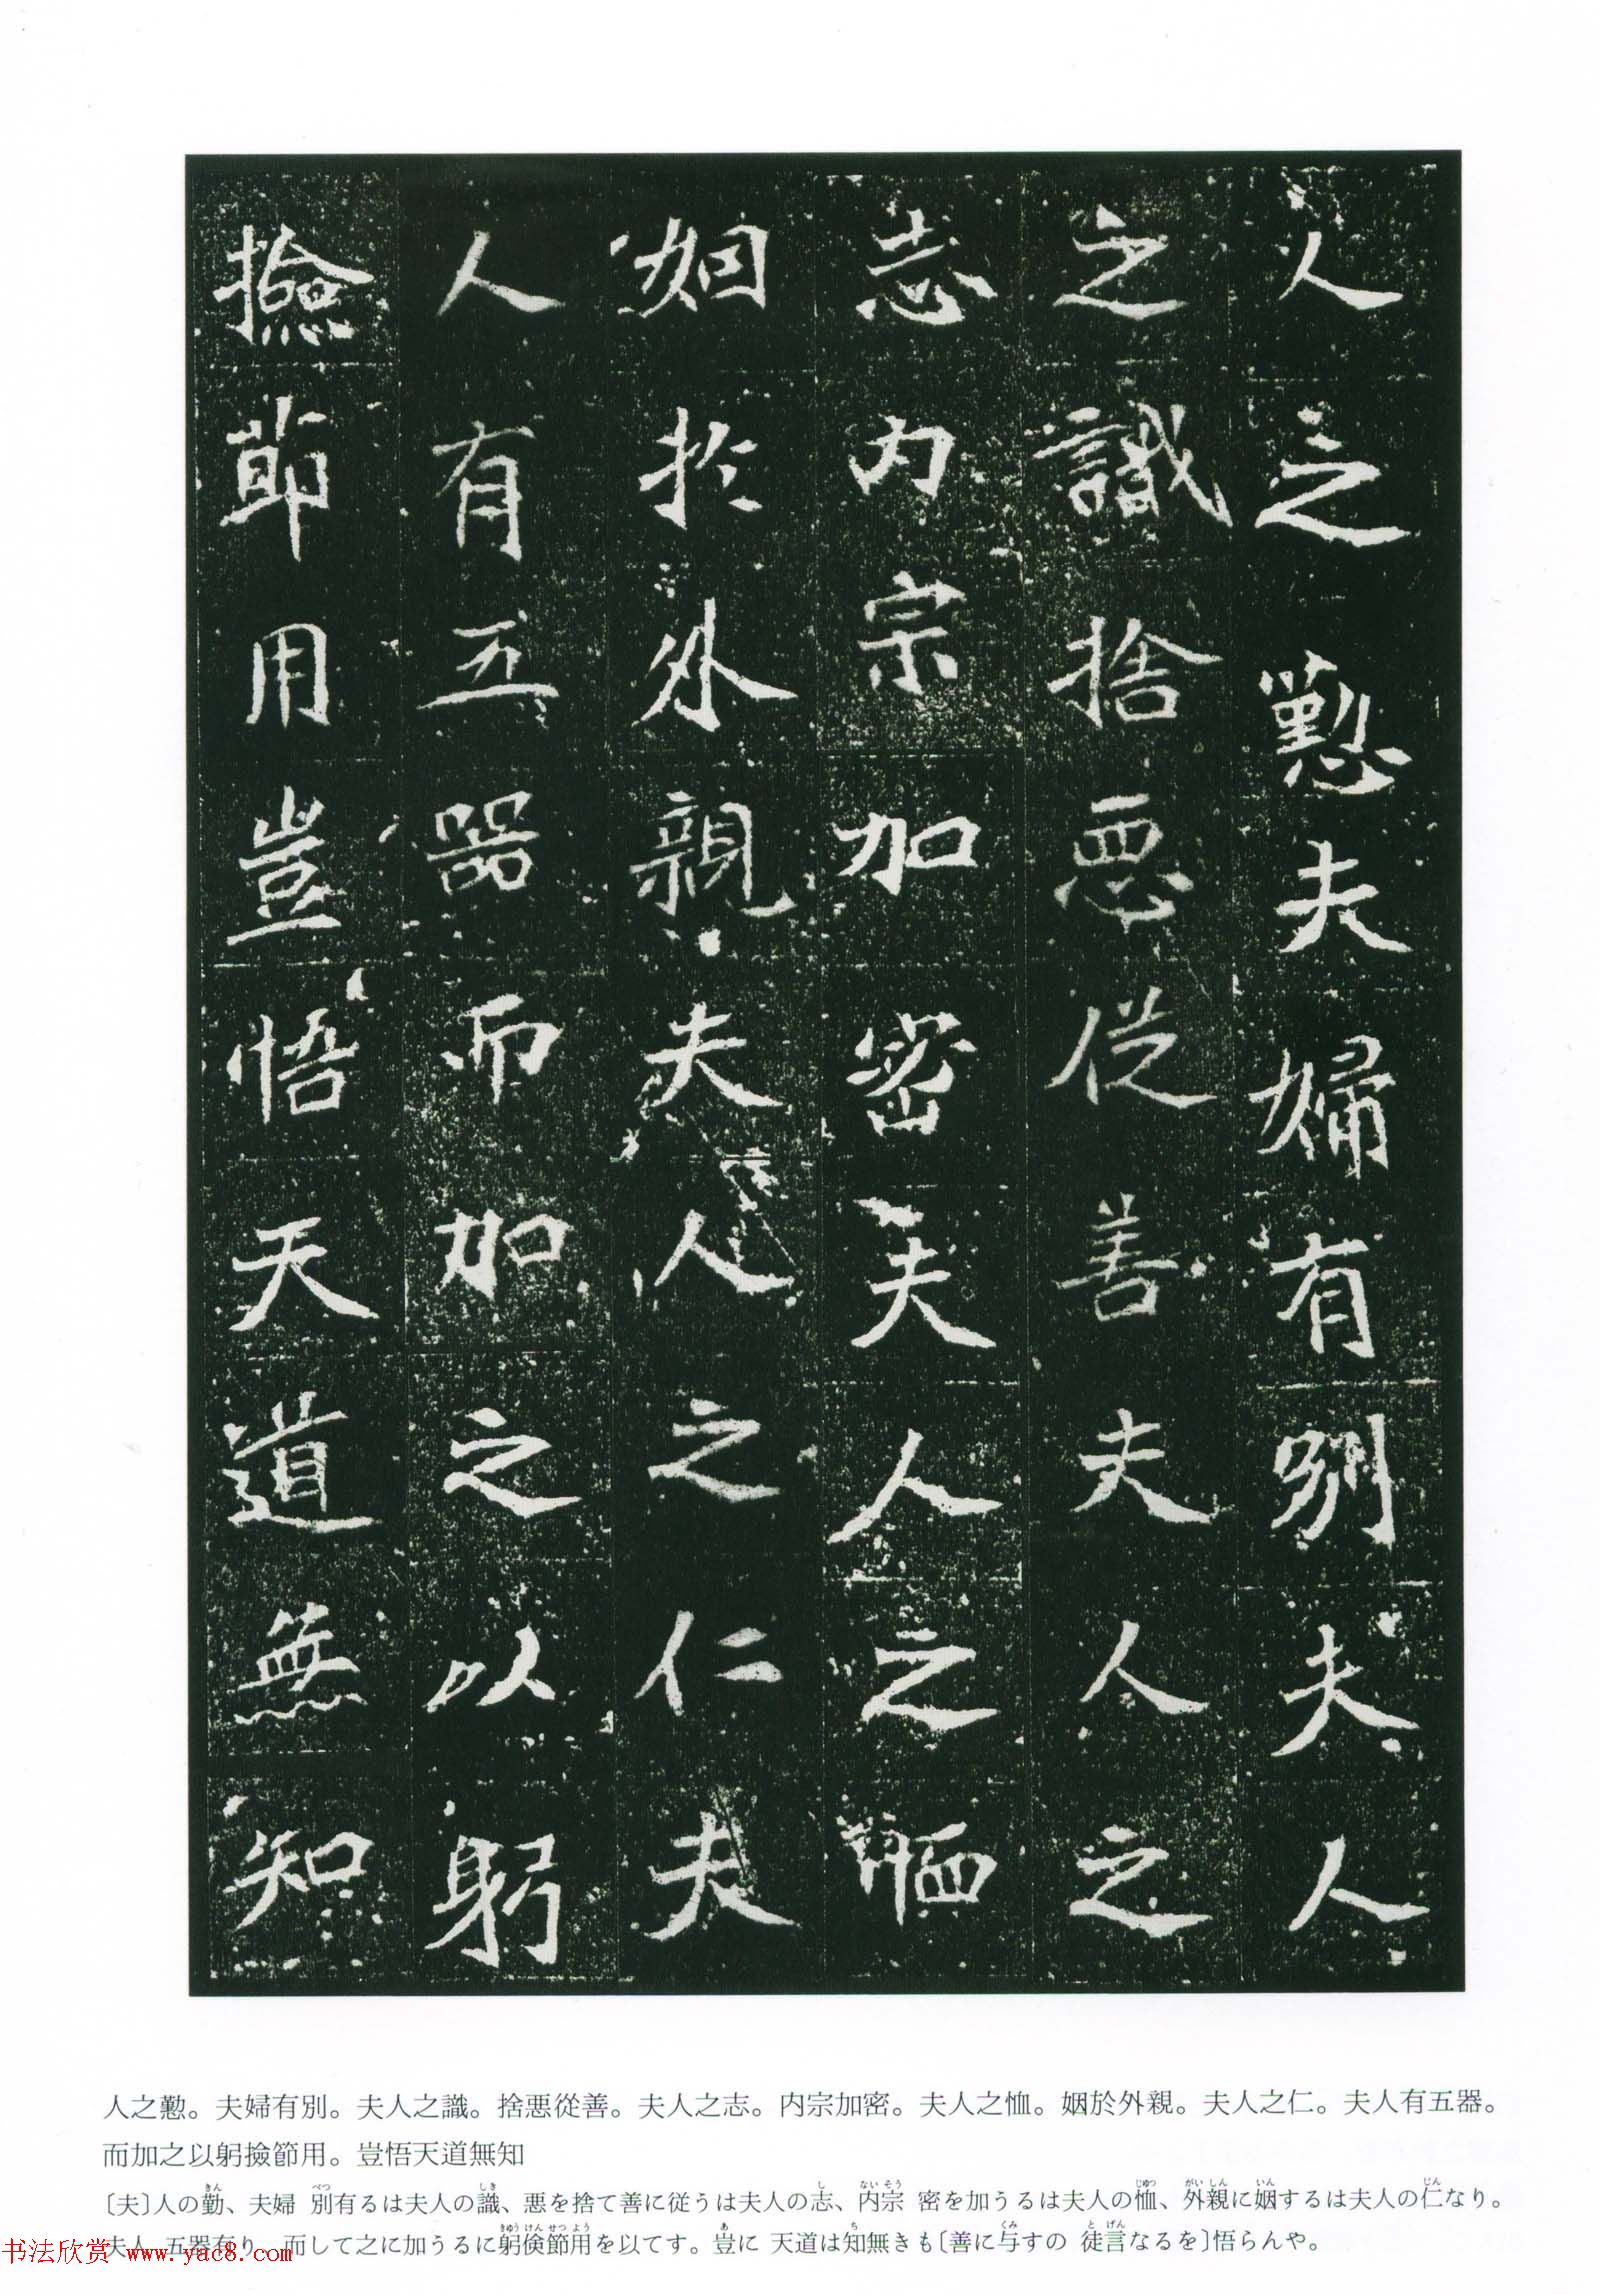 人之懃夫婦有別夫人
之識捨惡從善夫人之
志内宗加密夫人之恤
姻於外親夫人之仁夫
人有五器而加之以躬
撿節用豈悟天道無知
人之懃。夫婦有別。夫人之識。捨悪從善。夫人之志。内宗加密。夫人之恤。姻於外親。夫人之仁。夫人有五器。
而加之以躬撿節用。豈悟天道無知
〔夫〕人の勤、夫婦 別有るは夫人の識、悪を捨て善に従うは夫人の志、内宗 密を加うるは夫人の恤、外親に姻するは夫人の仁なり。
夫人 五器有り、而して之に加うるに躬倹節用を以てす。豈に 天道は知無きも〔善に与すの 徒言なるを〕悟らんや。
书法欣赏 www.yac8.com